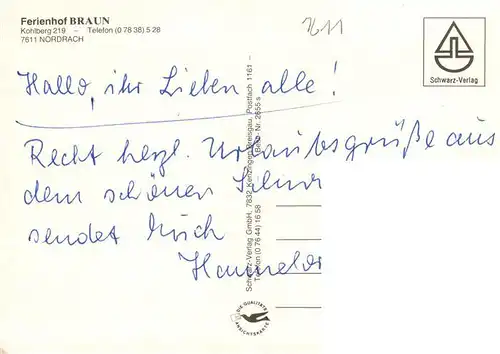 Ferienhof BRAUN
Kohlberg 219 – Telefon (0 78 38) 5 28
7611 NORDRACH
7611
Schwarz-Verlag
Hallo, ihr Lieben alle!
Recht herzl. Urlaubsgrüße aus
dem schönen
sendet Euch
Hannelore
Schwarz-Verlag GmbH, 7832 Kenzingen/Breisgau, Postfach 1161 –
Telefon (0 76 44) 16 58 – Best.-Nr. 2655 s
DIE QUALITÄTS
ANSICHTSKARTE